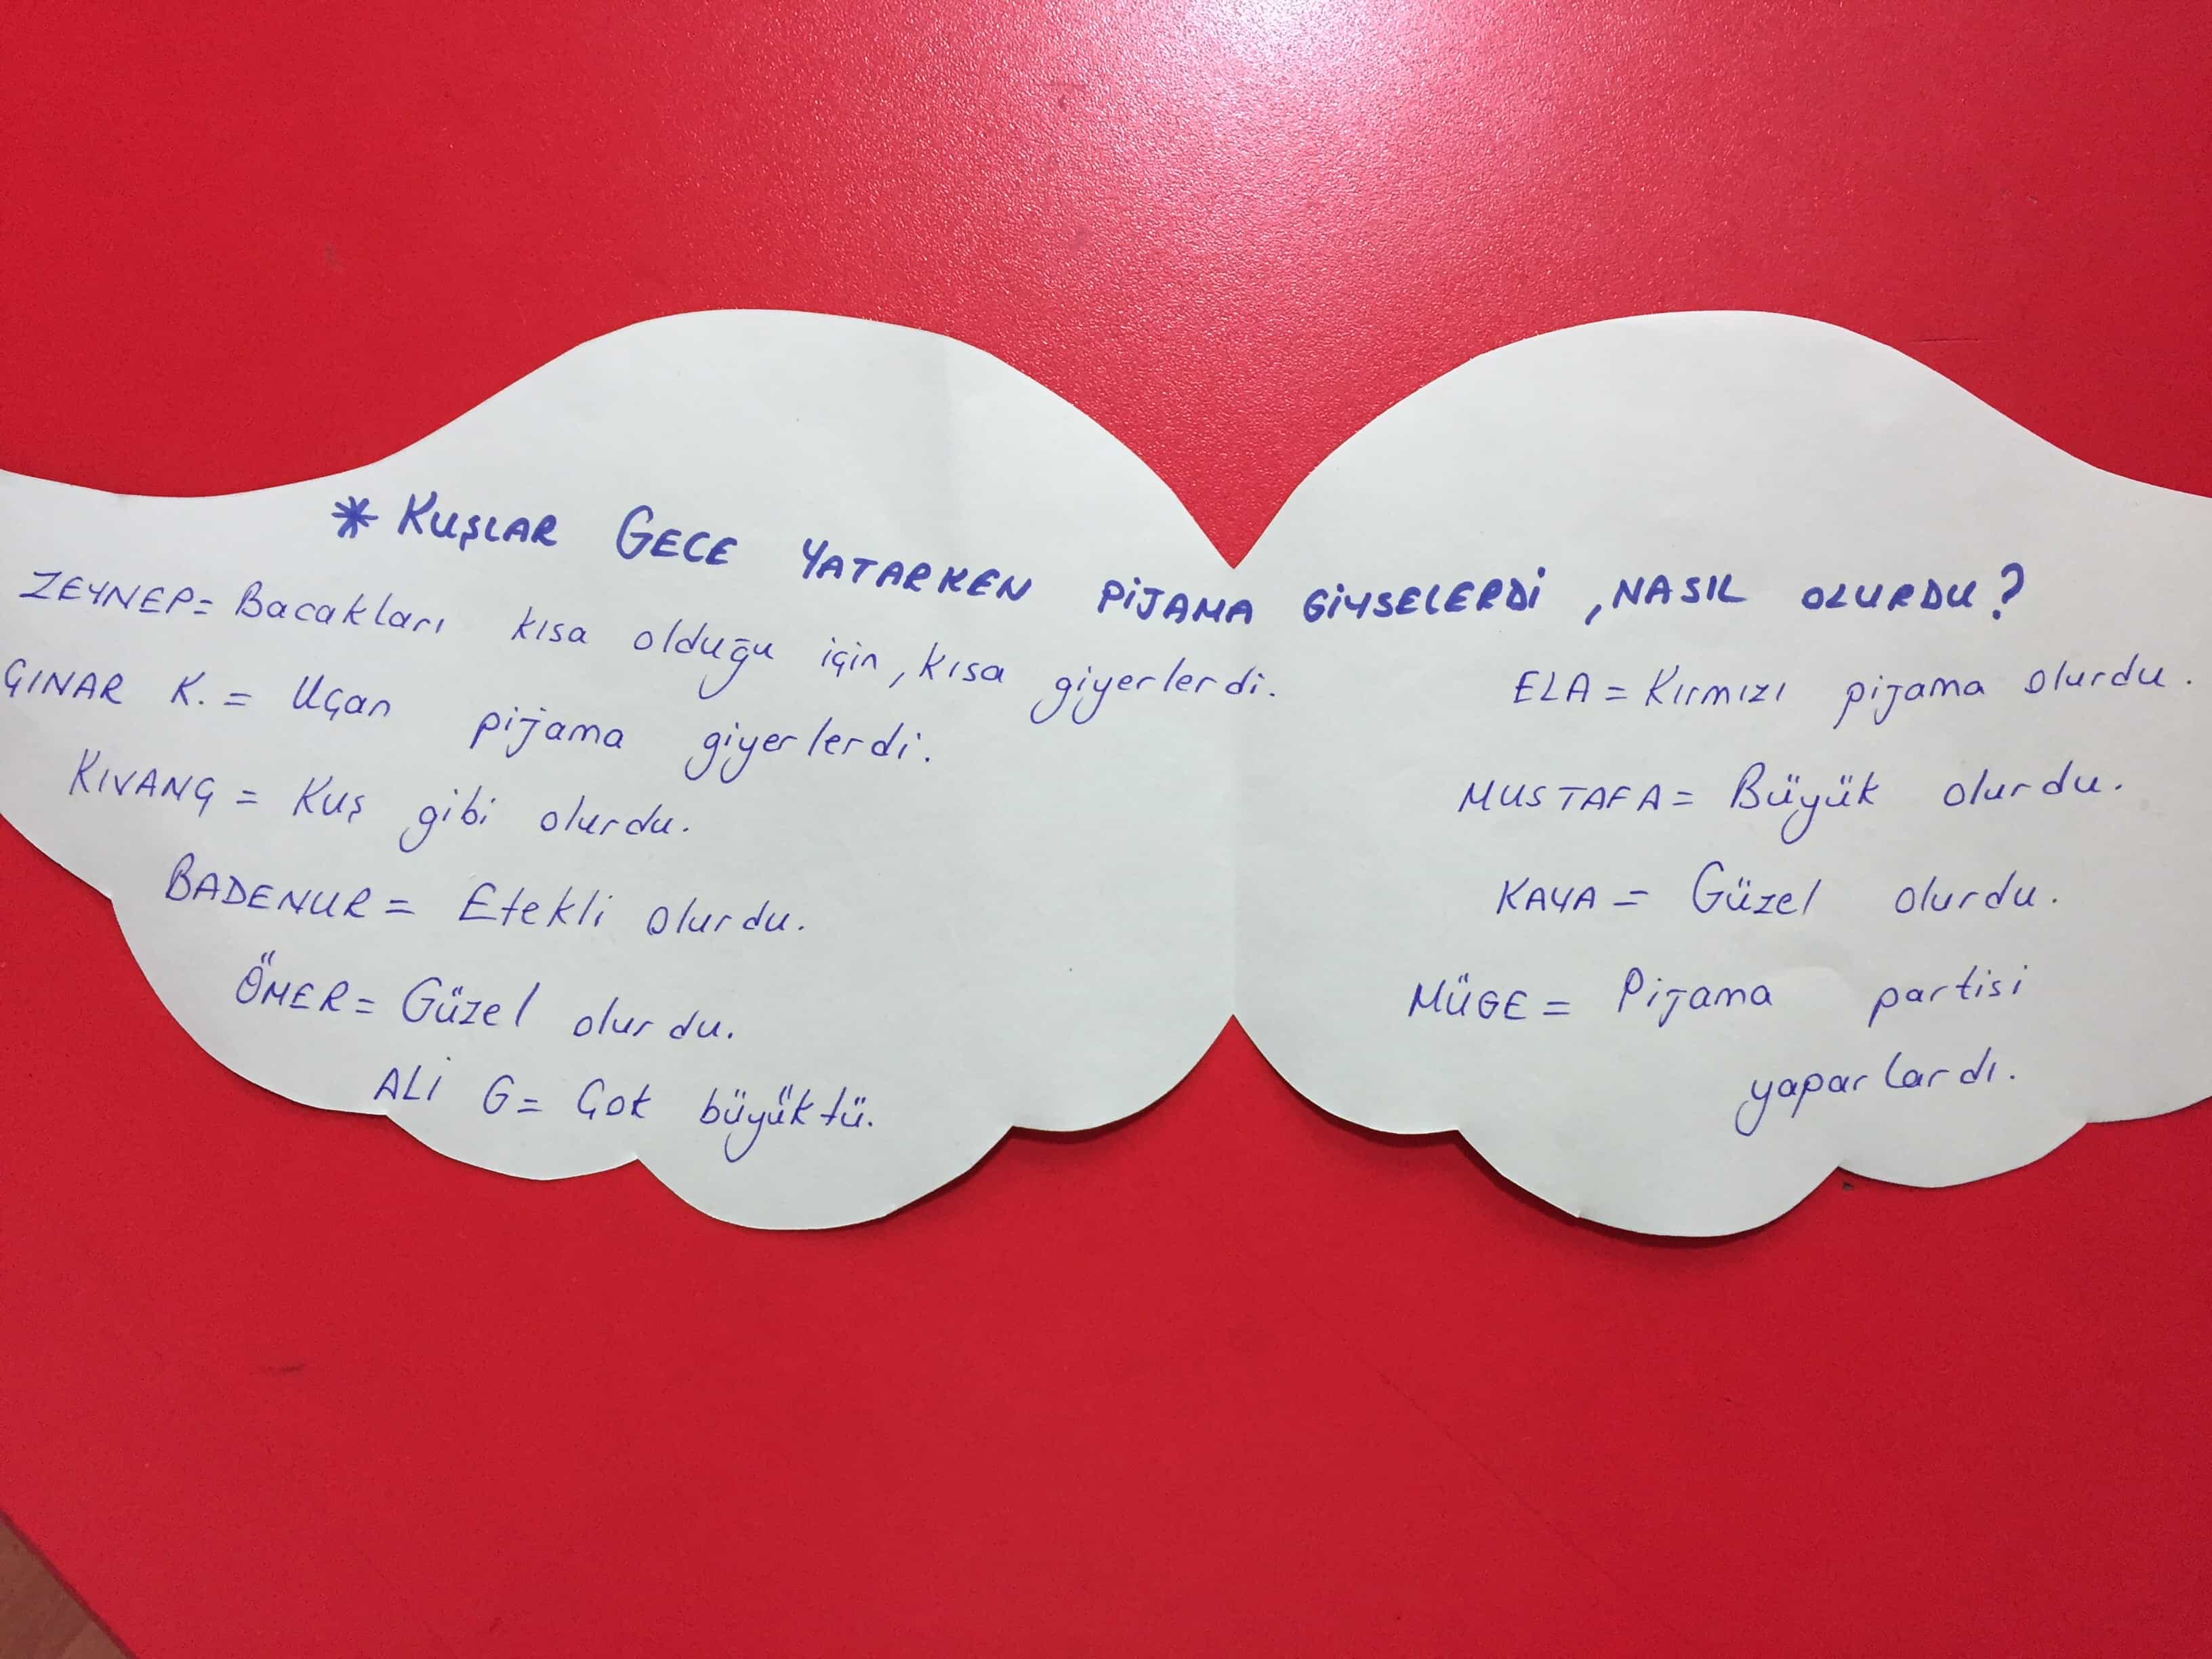 * KUŞLAR GECE YATARKEN PİJAMA GİYSELERDİ, NASIL OLURDU?
ZEYNEP= Bacakları kısa olduğu için, kısa giyerlerdi.
ÇINAR K. = Uçan pijama giyerlerdi.
KIVANÇ = Kuş gibi olurdu.
BADENUR = Etekli olurdu.
ÖMER= Güzel olurdu.
ALİ G= Çok büyüktü.
ELA = Kırmızı pijama olurdu.
MUSTAFA= Büyük olurdu.
KAYA = Güzel olurdu.
MÜGE = Pijama partisi
yaparlardı.